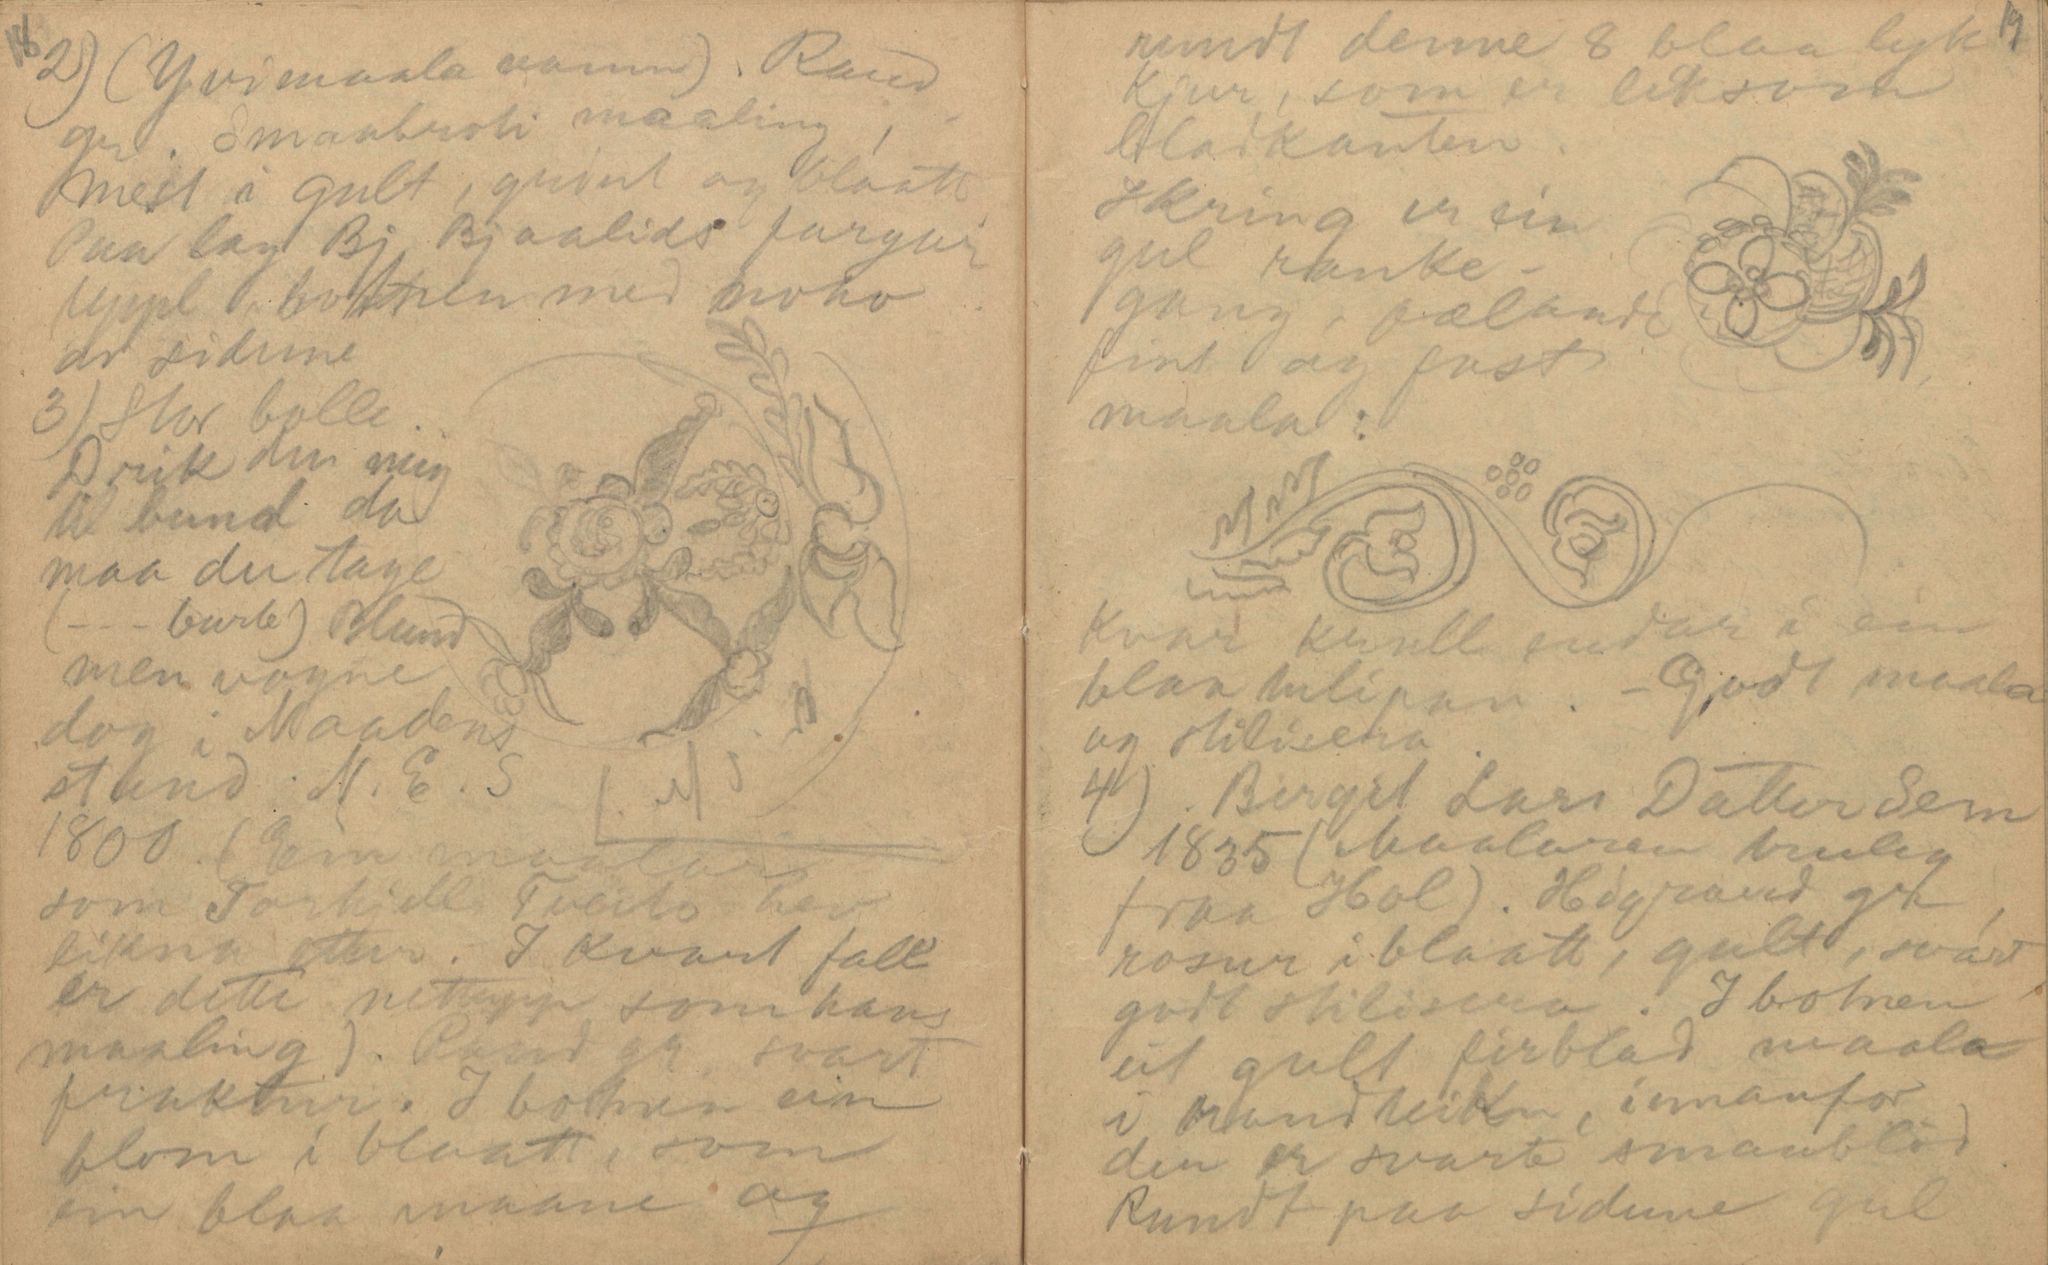 16
2) (Yvimaala vamn). Raud
gr. Smaabroti maaling,
mest i gult, grönt og blaatt.
Paa lag Bj. Bjaalids fargar
Uppl. i botnen med noko
av sidune
3) Stor bolle.
Drik du mig
til bund da
maa du tage
(--- burt) Blund
men vogne
dog i Naadens
stund. N. E. S
1800. (Ein maalar
som Torkjell Tveito hev
likna etter. I kvart fall
er dette nettupp som hans
maaling). Raud gr. svart
fraktur. I botnen ein
blom i blaatt, som
ein blaa maane og
19
rundt denne 8 blaa lyk
kjur, som er liksom
bladkanten.
Ikring er ein
gul ranke-
gang, gælande
fint og fast
maala:
Kvar krull endar i ein
blaa tulipan. - Godt maala
og stilisera.
4). Birgit Lars Datter Sem
1835 (Maalaren truleg
fraa Hol). Högraud gr,
rosur i blaatt, gult, svart
godt stilisera. I botnen
eit gult firblad maala
i rundkikn, innanfor
den er svarte smaablöd
Rundt paa sidune gul